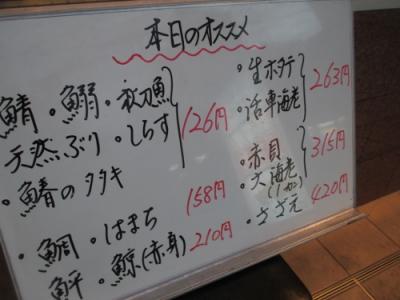 本日のオススメ
鯖・鰯・秋刀魚
天然ぶり・しらす
126円
・鰆のタタキ
158円
・鯛・はまち
鮃・鯨(赤身)
210円
・生ホタテ
・活車海老
263円
・赤貝
・大海老
315円
・さざえ
420円